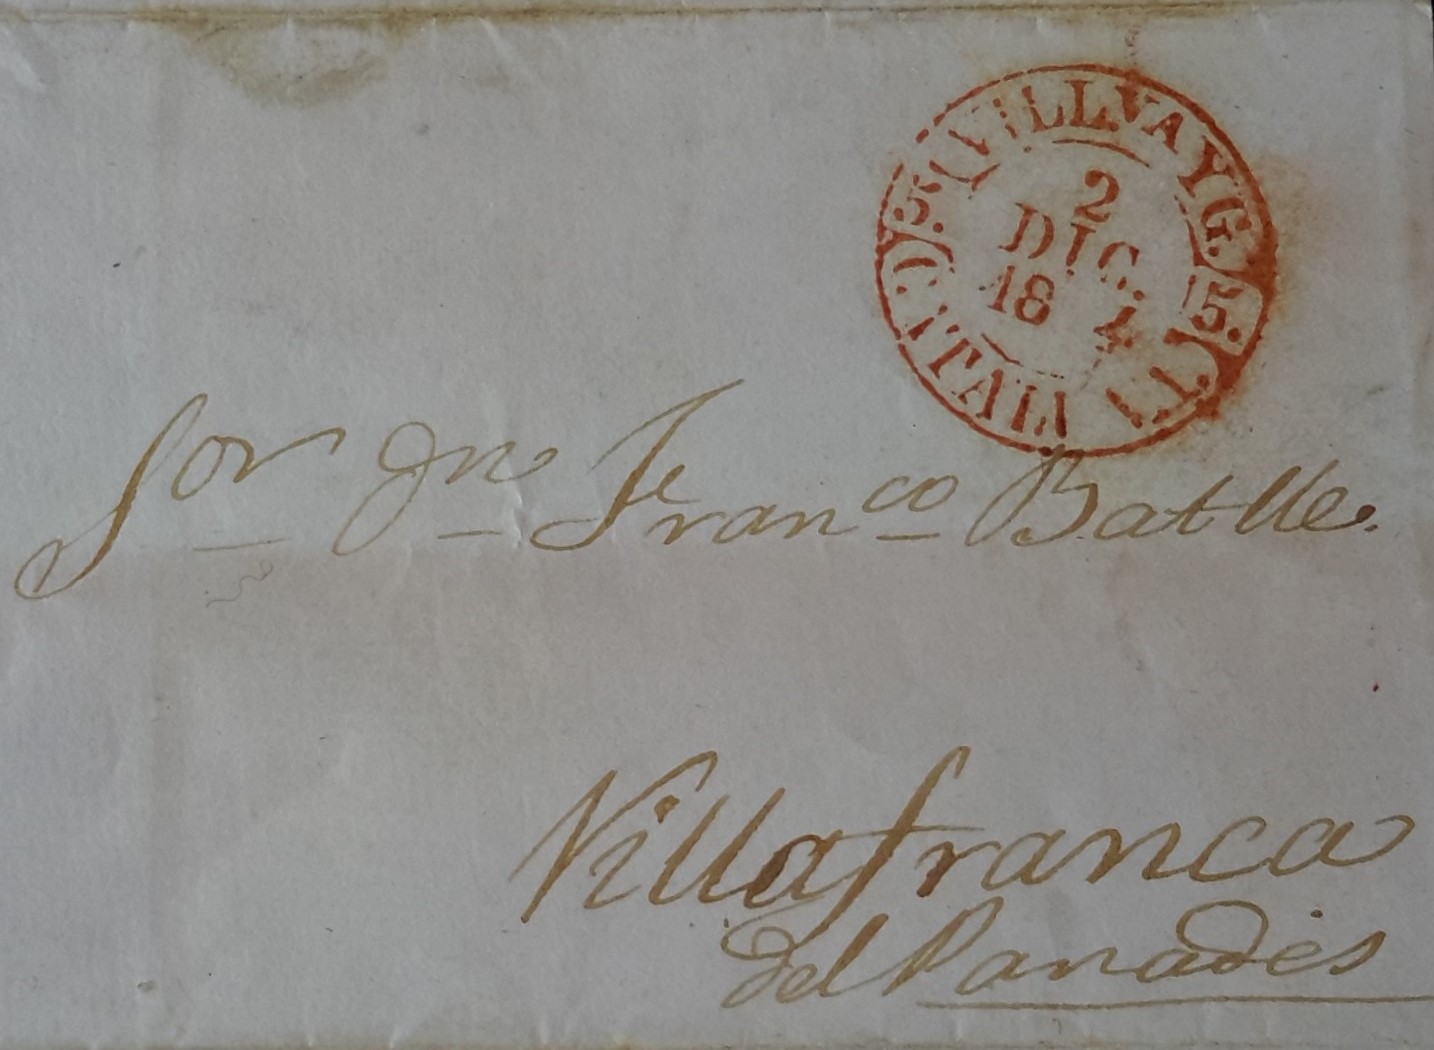 VILLVAYG.
5.
5.
2
DIC.
18 4
CATAL
Sor Dn Franco Batlle.
Villafranca
del Panadés